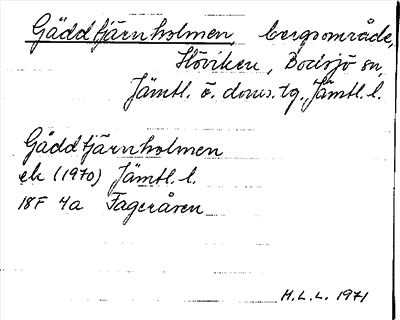 Gäddtjärnholmen, bergsområde,
Höviken, Bodsjö sn,
Jämtl. ö. doms. tg., Jämtl. l.
Gäddtjärnholmen
ek (1970) Jämtl. l.
18F 4a Fageråsen
H.L.L. 1971